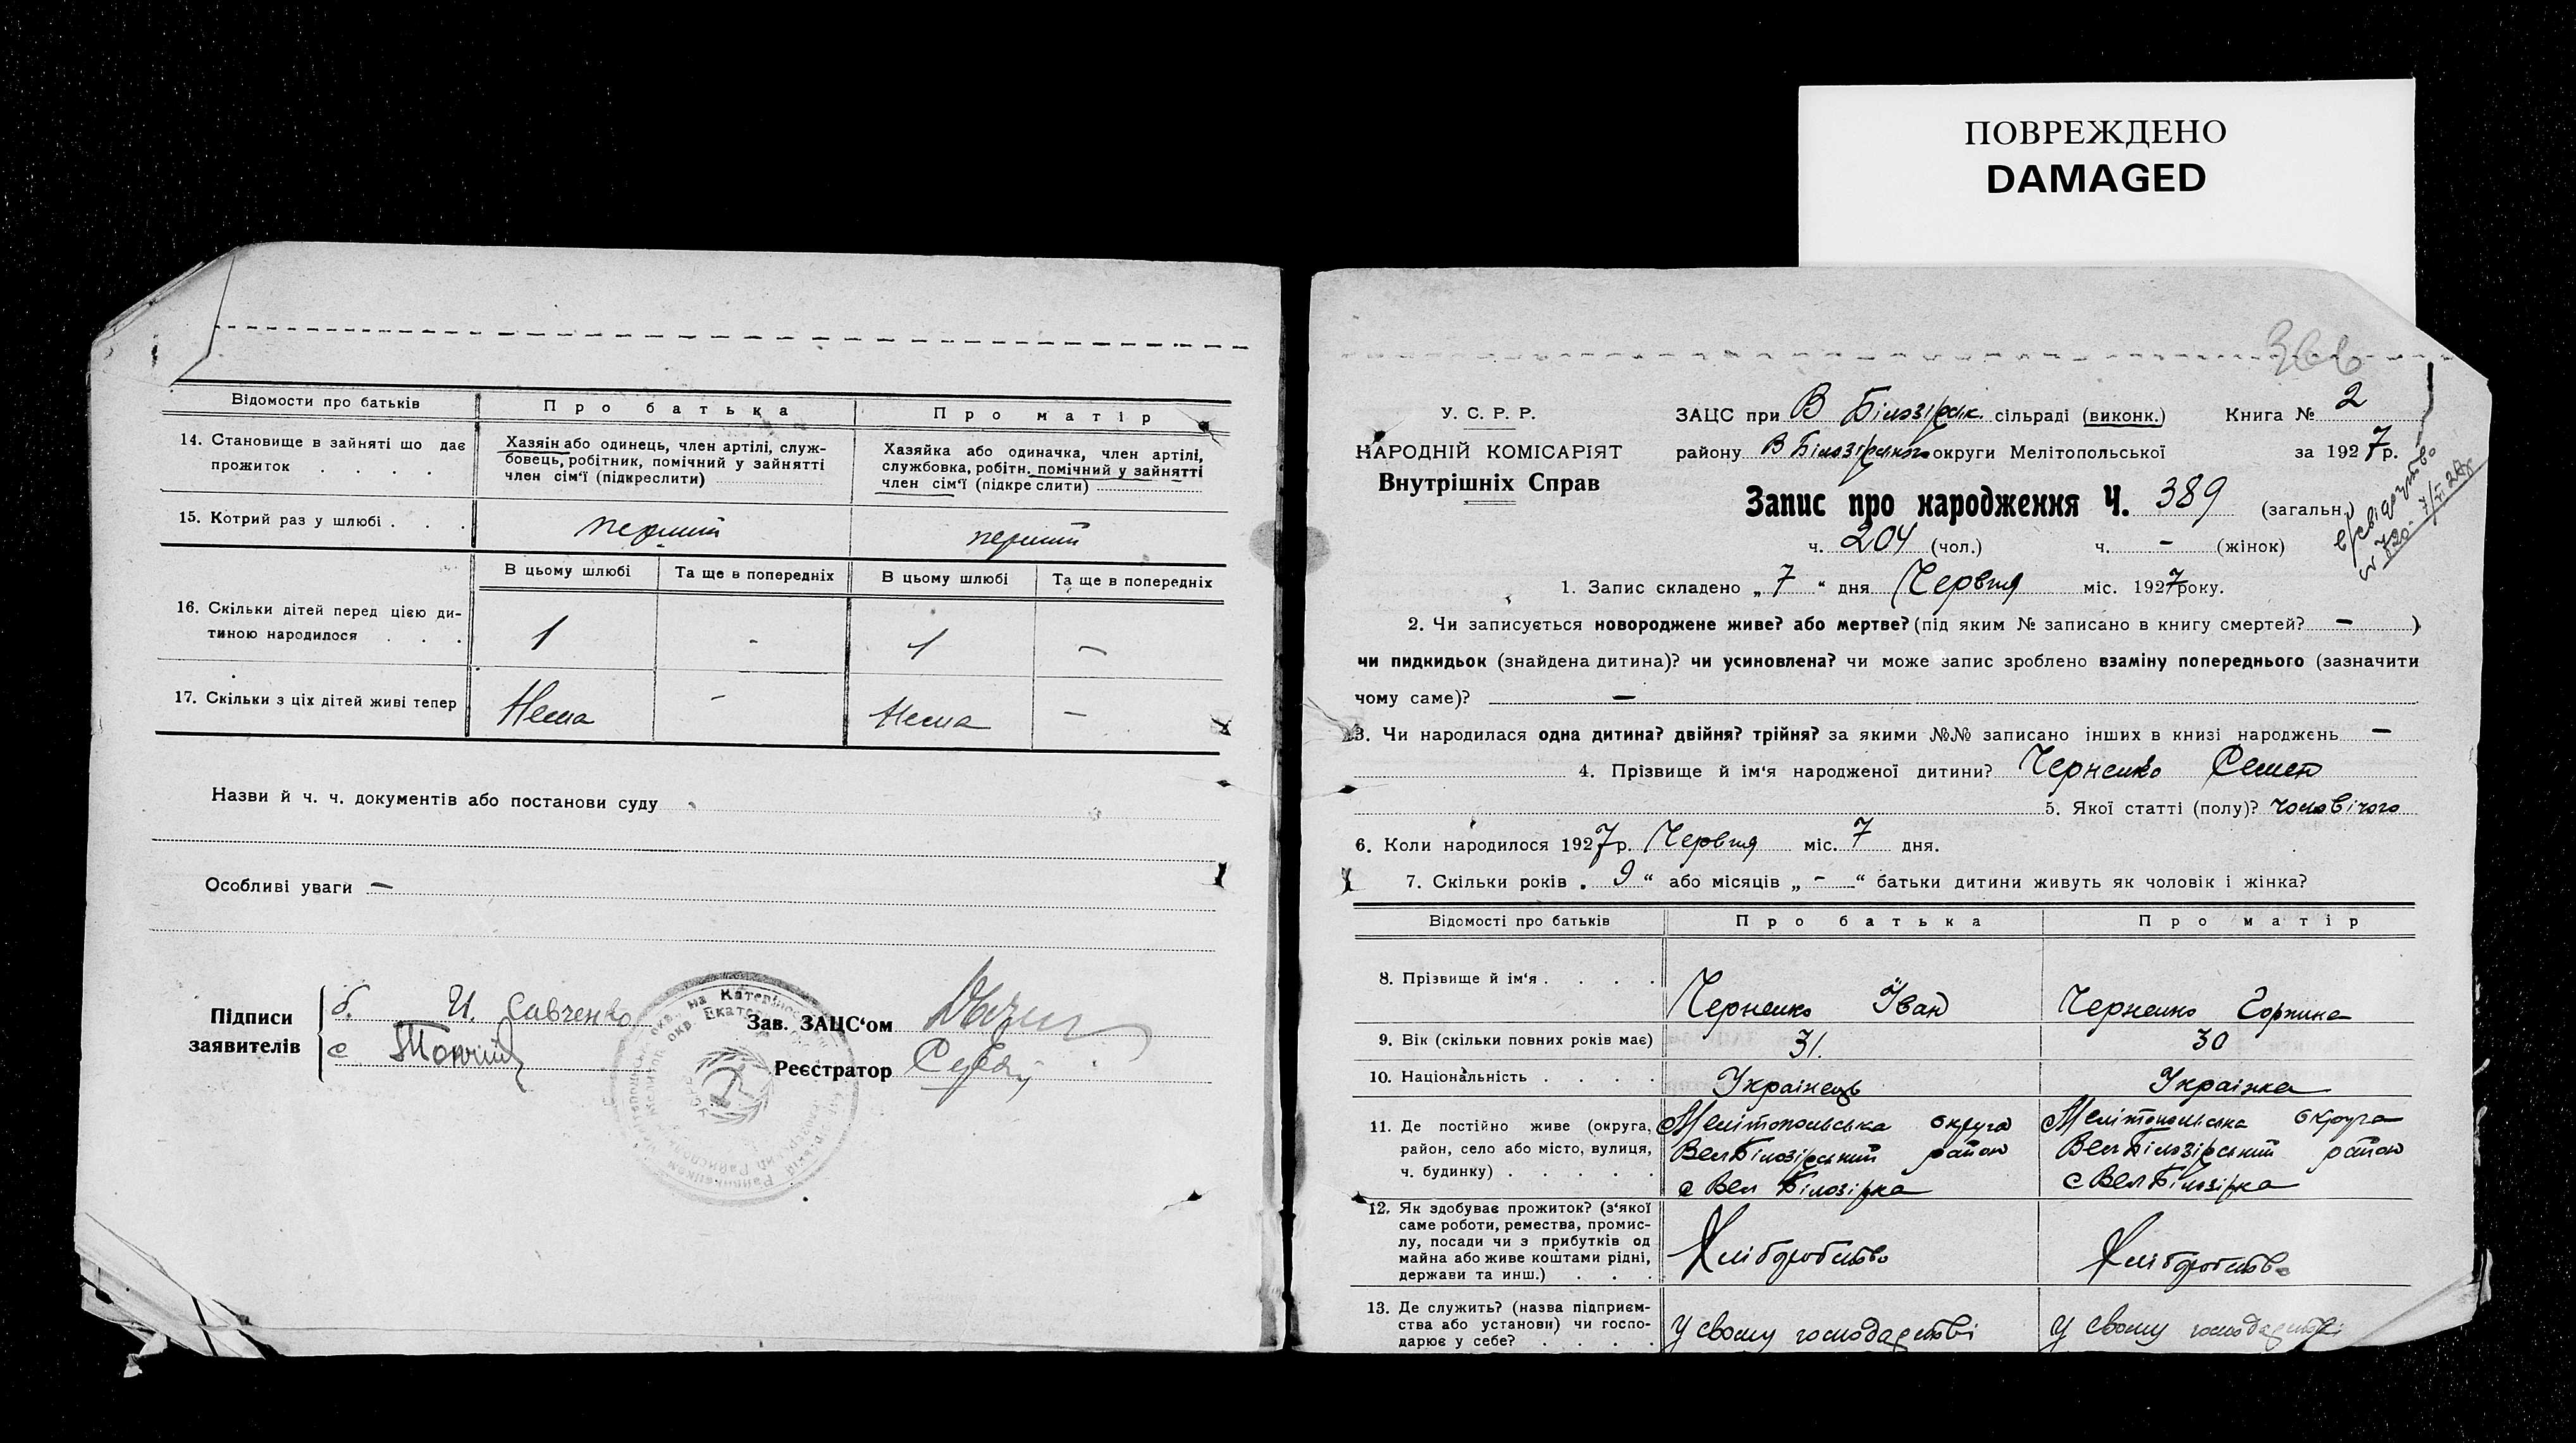 ПОВРЕЖДЕНО
DAMAGED
Відомости про батьків
Про батька
Про матір
14. Становище в зайняті що дає прожиток . . . .
Хазяін або одинець, член артілі, служ-
бовець, робітник, помічний у зайнятті
член сім'ї (підкреслити)
Хазяйка або одиначка, член артілі,
службовка, робітн. помічний у зайнятті
член сім'ї (підкреслити)
15. Котрий раз у шлюбі . . .
перший
перший
В цьому шлюбі
Та ще в попередніх
В цьому шлюбі
Та ще в попередніх
16. Скільки дітей перед цією ди-
тиною народилося . . .
1
-
1
-
17. Скільки з ціх дітей живі тепер
Нема
-
Нема
-
Назви й ч. ч. документів або постанови суду
Особливі уваги -
Підписи
заявителів
б. И. Савченко
с
Зав. ЗАЦС'ом
Реєстратор
366
У. С. Р. Р.
НАРОДНІЙ КОМІСАРІЯТ
Внутрішніх Справ
ЗАЦС при В Білозірск. сільраді (виконк.) Книга № 2
району В Білозірського округи Мелітопольської за 1927р.
Запис про народження Ч. 389 (загальн.)
ч. 204 (чол.) ч. - (жінок)
1. Запис складено „7“ дня Червня міс. 1927року.
2. Чи записується новороджене живе? або мертве? (під яким № записано в книгу смертей? - )
чи пидкидьок (знайдена дитина)? чи усиновлена? чи може запис зроблено взаміну попереднього (зазначити
чому саме)? -
3. Чи народилася одна дитина? двійня? трійня? за якими №№ записано інших в книзі народжень -
4. Прізвище й ім'я народженої дитини? Черненко Семен
5. Якої статті (полу)? чоловічого
6. Коли народилося 1927р. Червня міс. 7 дня.
7. Скільки років „ 9 “ або місяців „ - “ батьки дитини живуть як чоловік і жінка?
Відомості про батьків
Про батька
Про матір
8. Прізвище й ім'я . . . .
Черненко Іван
Черненко Горпина
9. Вік (скільки повних років має)
31.
30
10. Національність . . . .
Українець
Українка
11. Де постійно живе (округа,
район, село або місто, вулиця,
ч. будинку) . . . . .
Мелітопольська округа
Вел Білозірський район
с Вел Білозірка
Мелітопольська округа
Вел Білозірський район
с Вел Білозірка
12. Як здобуває прожиток? (з'якої
саме роботи, ремества, промис-
лу, посади чи з прибутків од
майна або живе коштами рідні,
держави та инш.) . . .
Хліборобство
Хліборобство
13. Де служить? (назва підприєм-
ства або установи) чи госпо-
дарює у себе? . . . .
У свому господарстві
У свому господарстві